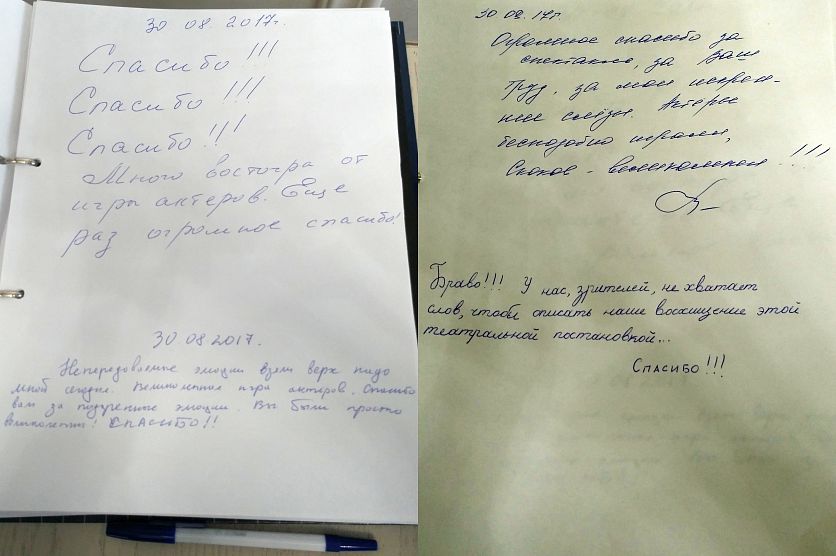 30 08. 2017г.
Спасибо!!!
Спасибо!!!
Спасибо!!!
Много восторга от
игры актеров. Еще
раз огромное спасибо!
30 08 2017.
Непередаваемые эмоции взяли верх надо
мной сегодня. Великолепная игра актеров. Спасибо
вам за подаренные эмоции. Вы были просто
великолепны! СПАСИБО!!
30 08. 17г.
Огромное спасибо за
спектакль, за Ваш
труд, за мои искрен-
ние слезы. Актеры
бесподобно играли,
великолепен!!!
Браво!!! У нас, зрителей, не хватает
слов, чтобы описать наше восхищение этой
театральной постановкой...
Спасибо!!!